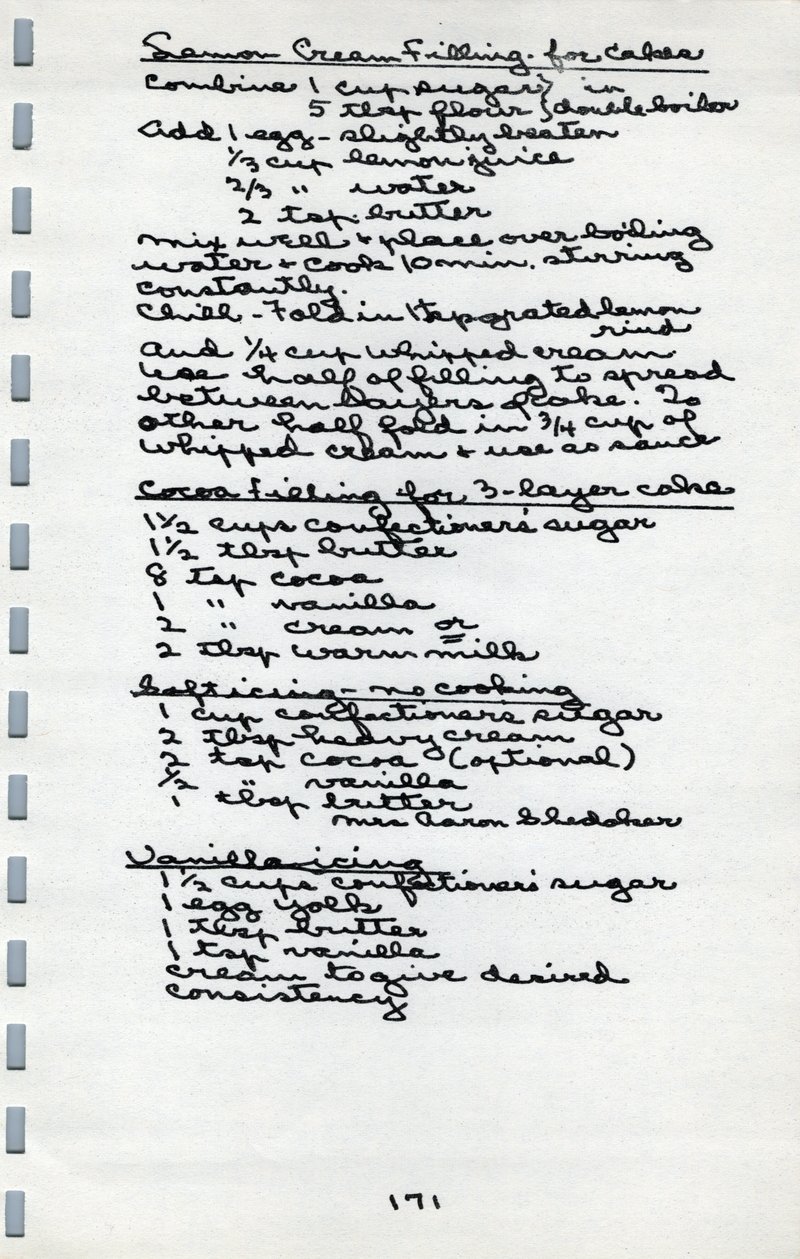 Lemon Cream Filling - for cakes
Combine 1 cup sugar } in
5 tbsp flour } double boiler
Add 1 egg - slightly beaten
1/3 cup lemon juice
2/3 " water
2 tsp. butter
mix well + place over boiling
water + cook 10 min. stirring
constantly.
Chill - Fold in 1 tsp grated lemon
rind
and 1/4 cup whipped cream
Use half of filling to spread
between layers of cake. To
other half fold in 3/4 cup of
whipped cream + use as sauce
Cocoa Filling for 3-layer cake
1 1/2 cups confectioner's sugar
1 1/2 tbsp butter
8 tsp cocoa
1 " vanilla
2 " cream or
2 tbsp warm milk
Soft icing - no cooking
1 cup confectioner's sugar
2 tbsp heavy cream
2 tsp cocoa (optional)
1/2 " vanilla
1 tbsp butter
Mrs Aaron Shedaker
Vanilla icing
1 1/2 cups confectioner's sugar
1 egg yolk
1 tbsp butter
1 tsp vanilla
cream to give desired
consistency
171